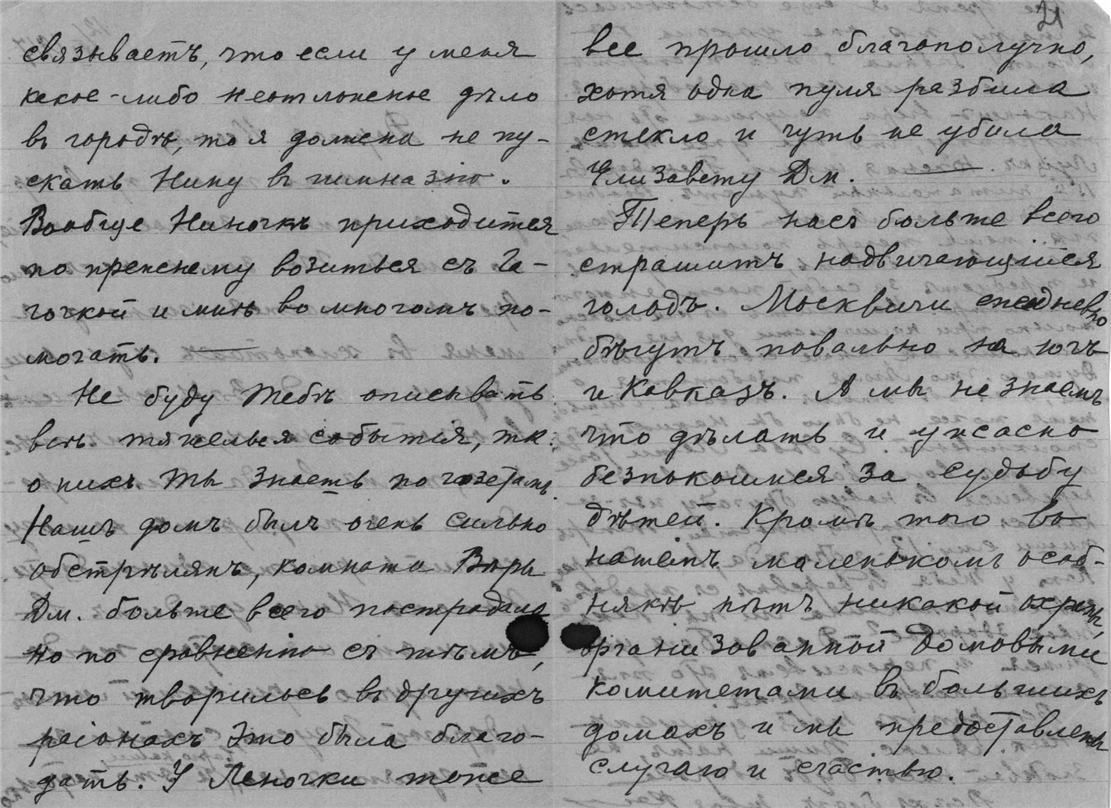 связываетъ, что если у меня
какое-либо неотложное дѣло
въ городѣ, то я должна не пу-
скать Нину въ гимназію.
Вообще Ниночкѣ приходится
по прежнему возиться съ Га-
гочкой и мнѣ во многомъ по-
могать.
Не буду Тебѣ описывать
всѣ тяжелыя событія, т.к.
о нихъ Ты знаешь по газетамъ.
Нашъ домъ былъ очень сильно
обстрѣлянъ, комната Вѣры
Дм. больше всего пострадала
но по сравненію съ тѣмъ,
что творилось въ другихъ
раіонахъ это была благо-
дать. У Леночки тоже
21
все прошло благополучно,
хотя одна пуля разбила
стекло и чуть не убила
Елизавету Дм.
Теперь насъ больше всего
страшитъ надвигающійся
голодъ. Москвичи ежедневно
бѣгутъ повально на югъ
и Кавказъ. А мы не знаемъ
что дѣлать и ужасно
безпокоимся за судьбу
дѣтей. Кромѣ того въ
нашемъ маленькомъ особ-
някѣ нѣтъ никакой охраны,
организованной домовыми
комитетами въ большихъ
домахъ и мы предоставлены
случаю и счастью.